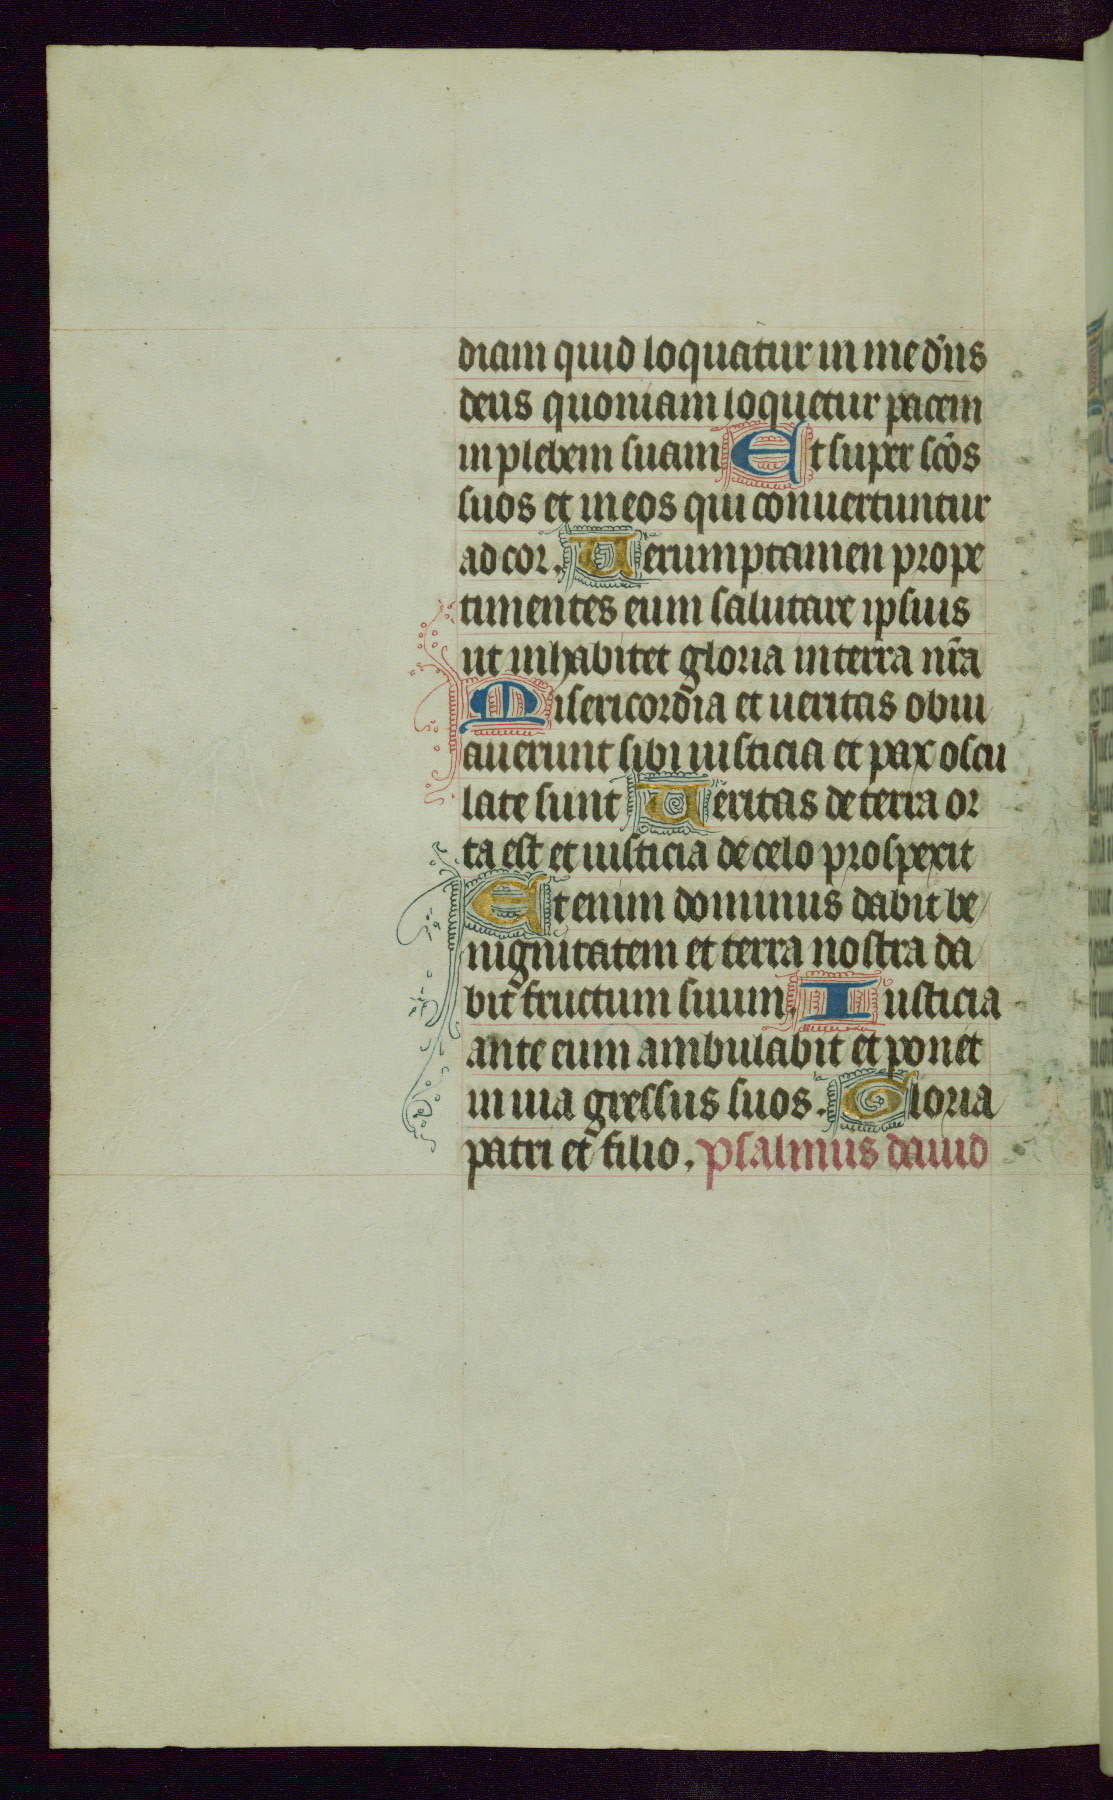 diam quid loquatur in me dn̄s
deus quoniam loquetur pacem
in plebem suam Et super sc̄os
suos et in eos qui conuertuntur
ad cor. Uerumptamen prope
timentes eum salutare ipsius
ut inhabitet gloria in terra nr̄a
Misericordia et ueritas obui
auerunt sibi iusticia et pax oscu
late sunt Ueritas de terra or
ta est et iusticia de celo prospexit
Etenim dominus dabit be
nignitatem et terra nostra da
bit fructum suum. Iusticia
ante eum ambulabit et ponet
in uia gressus suos. Gloria
patri et filio. psalmus dauid